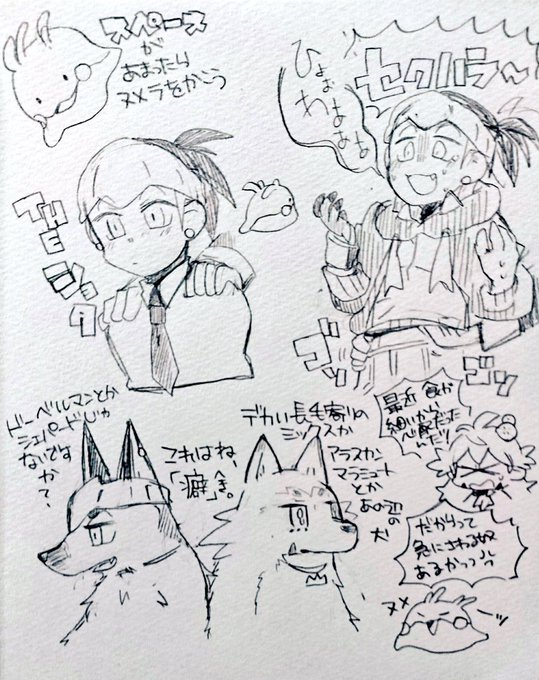 スペース
が
あまったら
ヌメラをかこう
セクハラ〜
ひょぉ
わぁぁぁ
THE
ジッ
最近 食が
細いから
心配だった
んだッ!!
だからって
急にさわる奴
あるかっつ
ヌメ
ーッ
ドーベルマンとか
シェパードじゃ
ないです
か?
これはね、
「癖」
デカい長毛寄りの
ミックスか
アラスカン
マラミュート
とか
あの辺の
犬